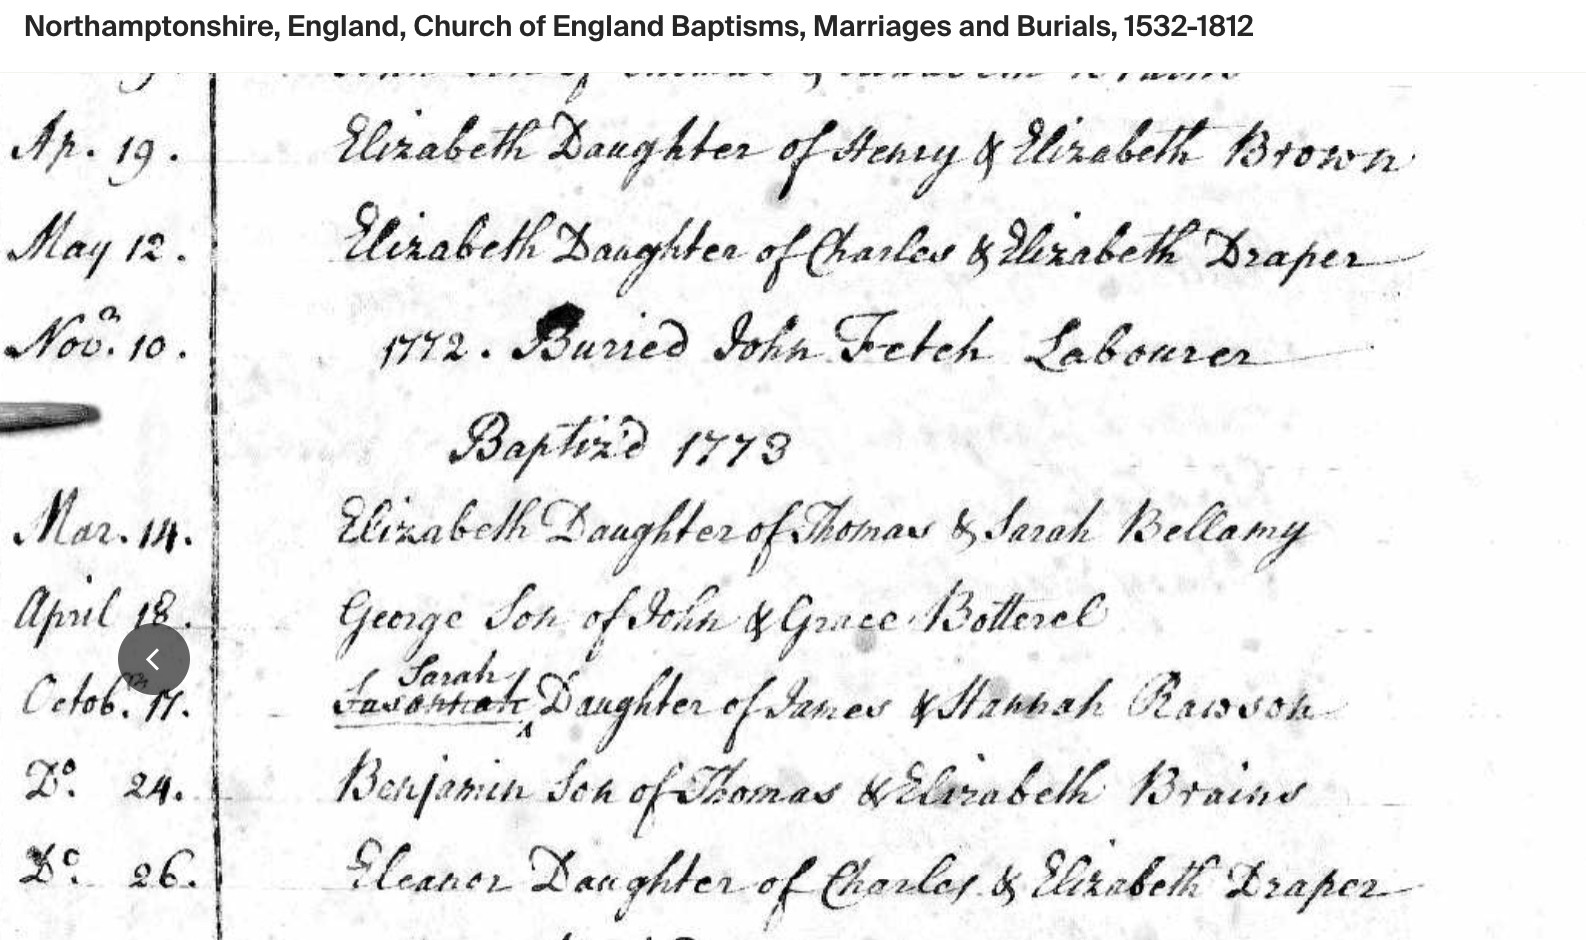 Northamptonshire, England, Church of England Baptisms, Marriages and Burials, 1532-1812
Ap. 19. Elizabeth Daughter of Henry & Elizabeth Brown
May 12. Elizabeth Daughter of Charles & Elizabeth Draper
Novr. 10. 1772. Buried John Fetch Labourer
Baptiz'd 1773
Mar. 14. Elizabeth Daughter of Thomas & Sarah Bellamy
April 18. George Son of John & Grace Botterel
Sarah
Octob. 17. Susannah Daughter of James & Hannah Rawson
Do. 24. Benjamin Son of Thomas & Elizabeth Brains
Do. 26. Eleanor Daughter of Charles & Elizabeth Draper